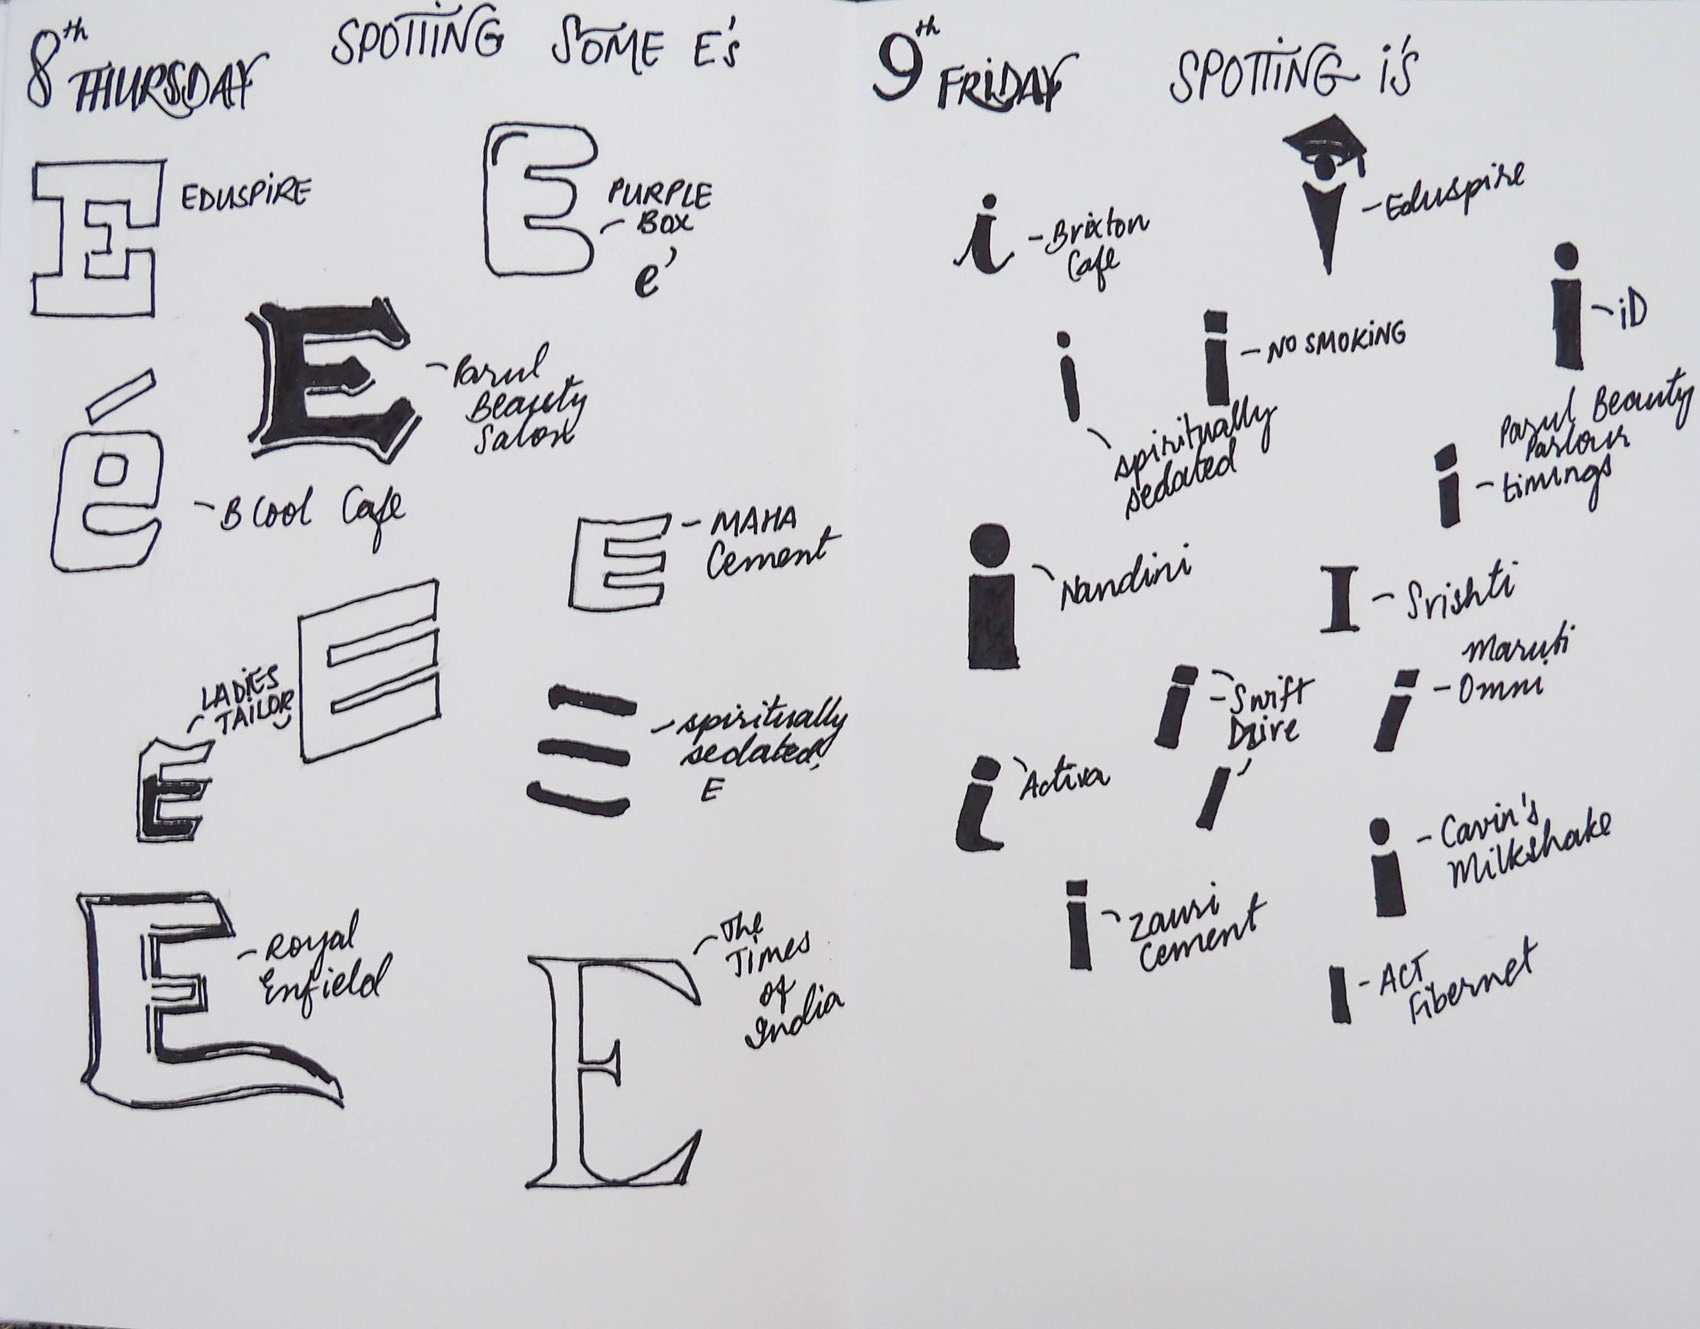 8th THURSDAY
SPOTTING SOME E's
E
EDUSPIRE
E
PURPLE
BOX
e
E
Parul
Beauty
Salon
é
B Cool Cafe
E
MAHA
Cement
E
LADIES
TAILOR
E
E
spiritually
sedated
E
E
Royal
Enfield
E
The
Times
of
India
9th FRiDAY
SPOTTING i's
i
Brixton
Cafe
i
Eduspire
i
iD
i
spiritually
sedated
i
NO SMOKING
i
Parul Beauty
Parlour
timings
i
Nandini
I
Srishti
i
Swift
Dzire
I
i
Maruti
Omni
i
Activa
i
Cavin's
Milkshake
i
Zauri
Cement
I
ACT
Fibernet